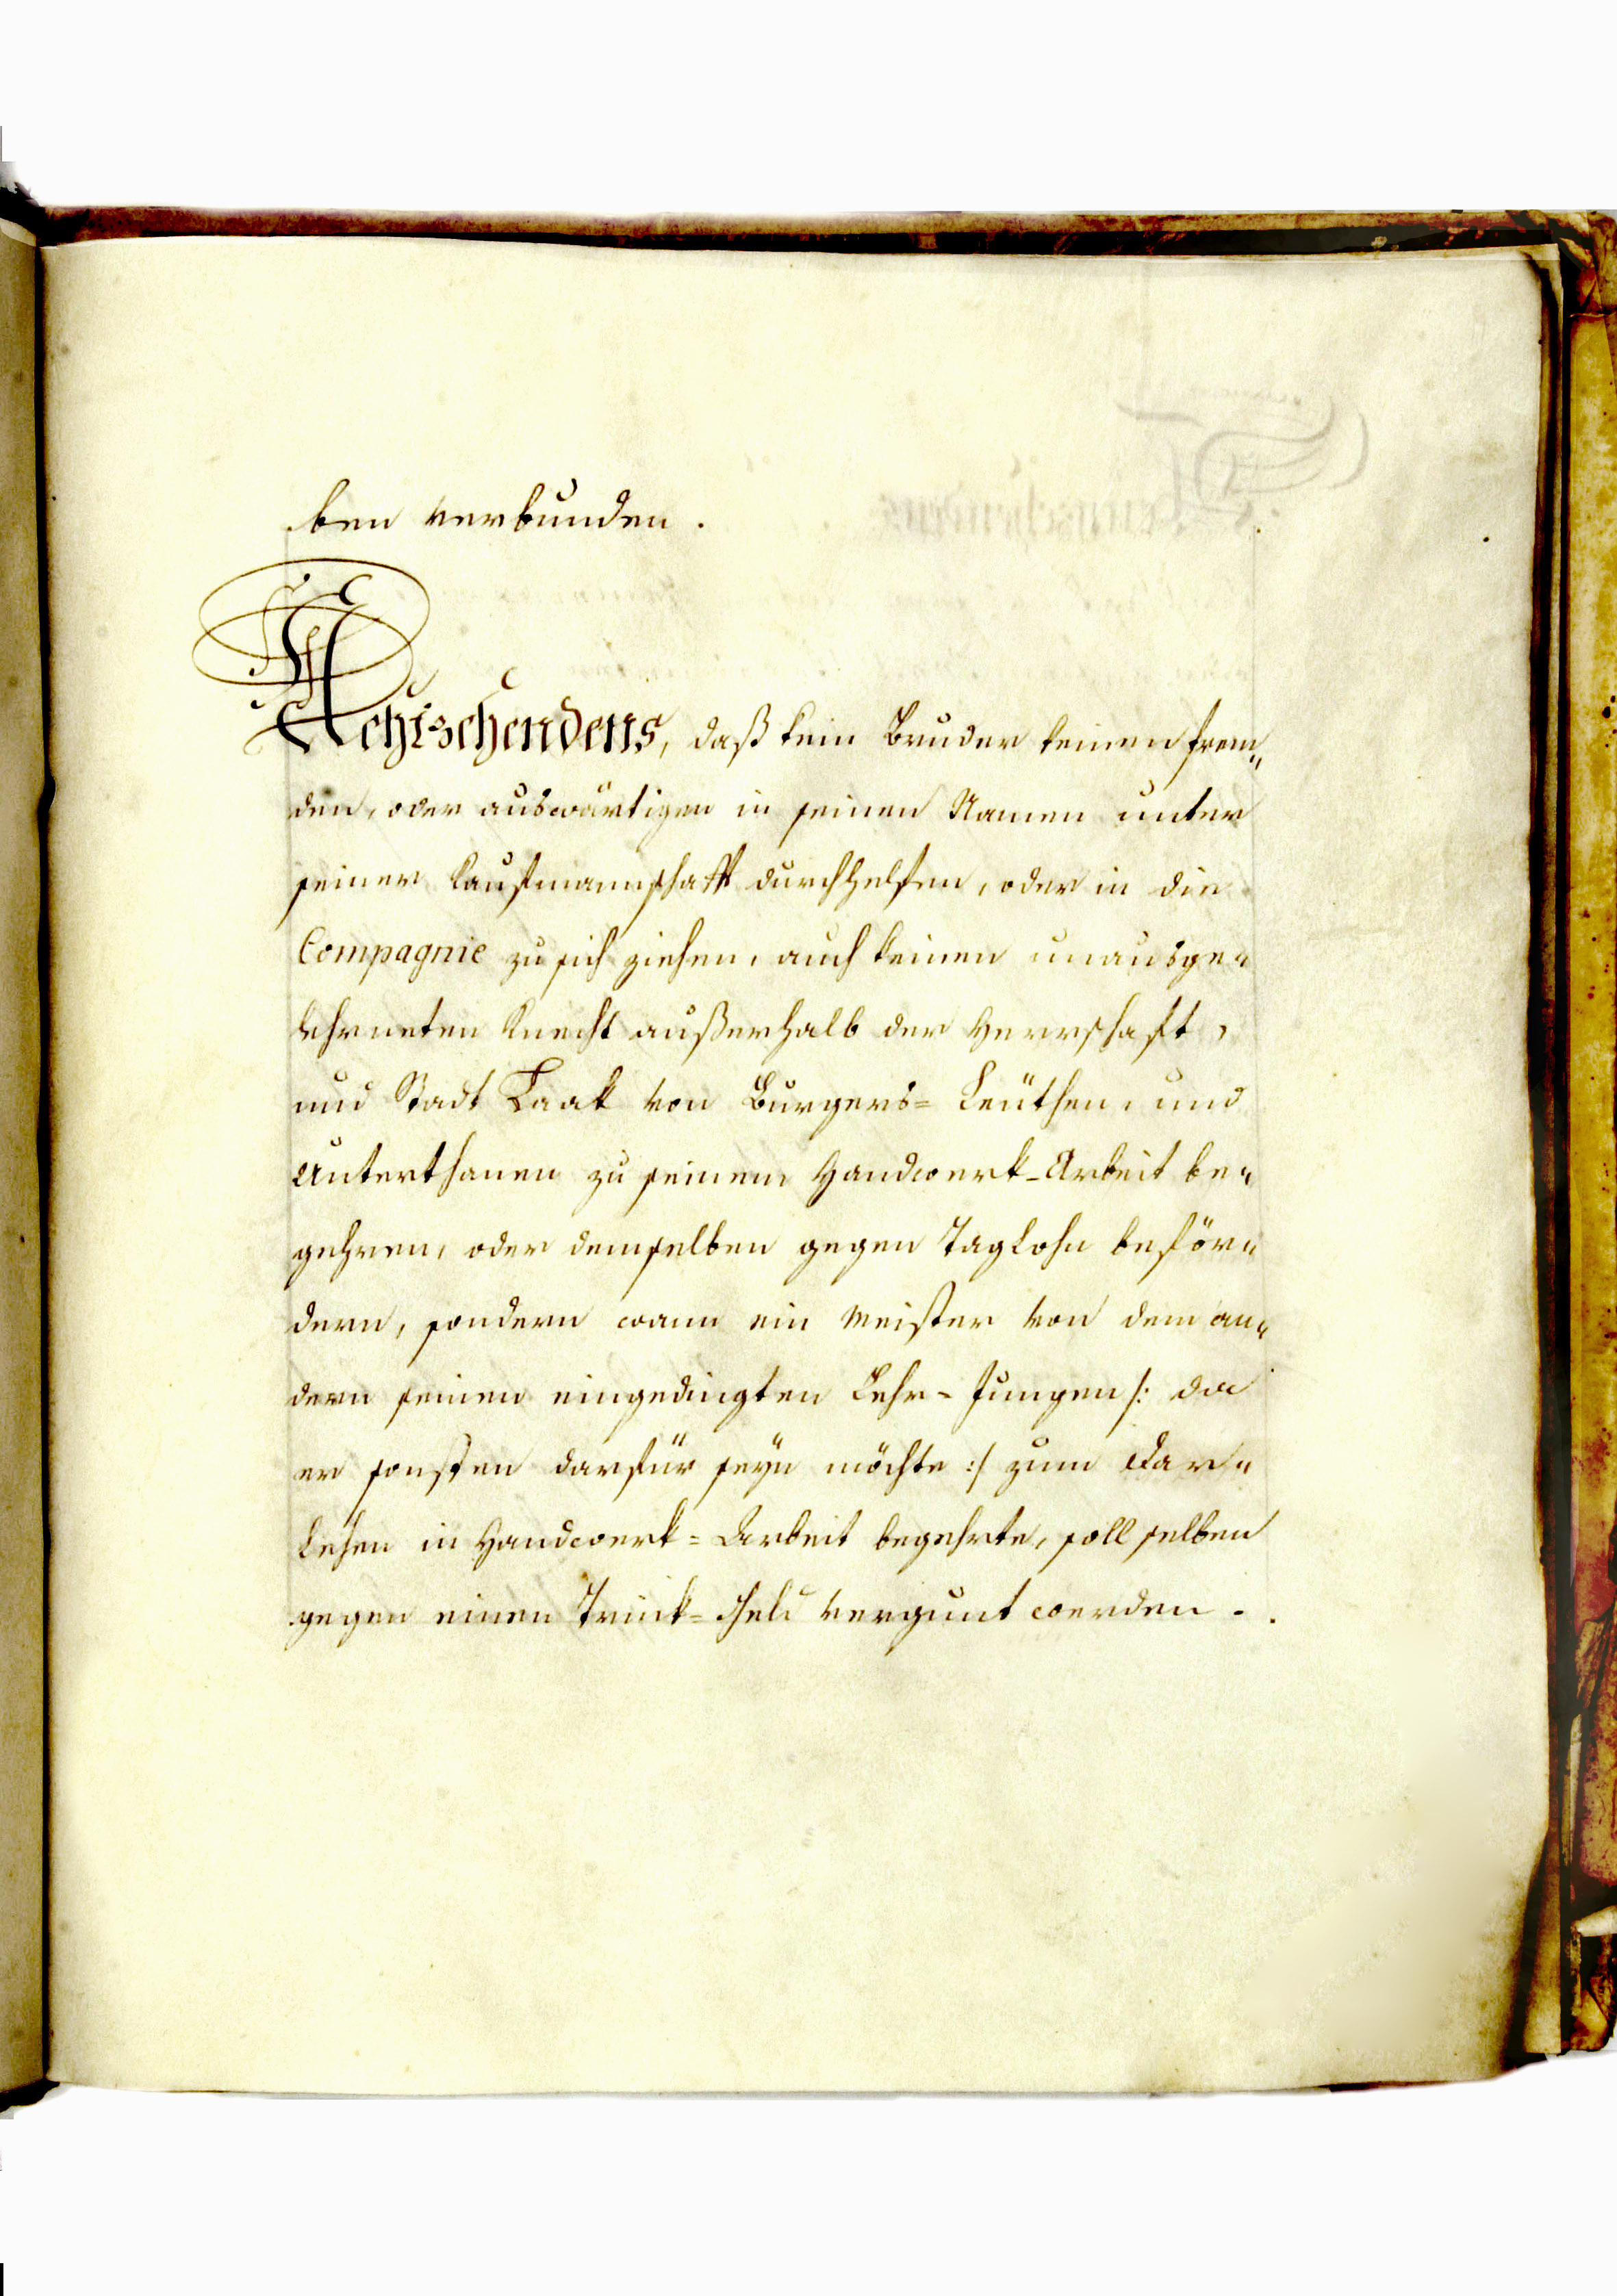 ben verbunden.
Achtzehendens, daß kein Bruder keinen frem„
den, oder auswärtigen in seinen Namen unter
seiner Kaufmannschaft durchhelfen, oder in die
Compagnie zu sich ziehen, auch keinen unausge„
lehrneten Knecht außerhalb der Herrschaft,
und Stadt Laak von Burgers= Leüthen, und
Unterthanen zu seinem Handwerk-Arbeit be„
gehren, oder demselben gegen Taglohn beför„
dern, sondern wann ein Meister von dem an„
dern seinen eingedingten Lehr-Jungen /: da
er sonsten darfür seyn möchte :/ zum Dar„
Lehen in Handwerk=Arbeit begehrte, soll selben
gegen einen Trink=Geld vergunt werden.